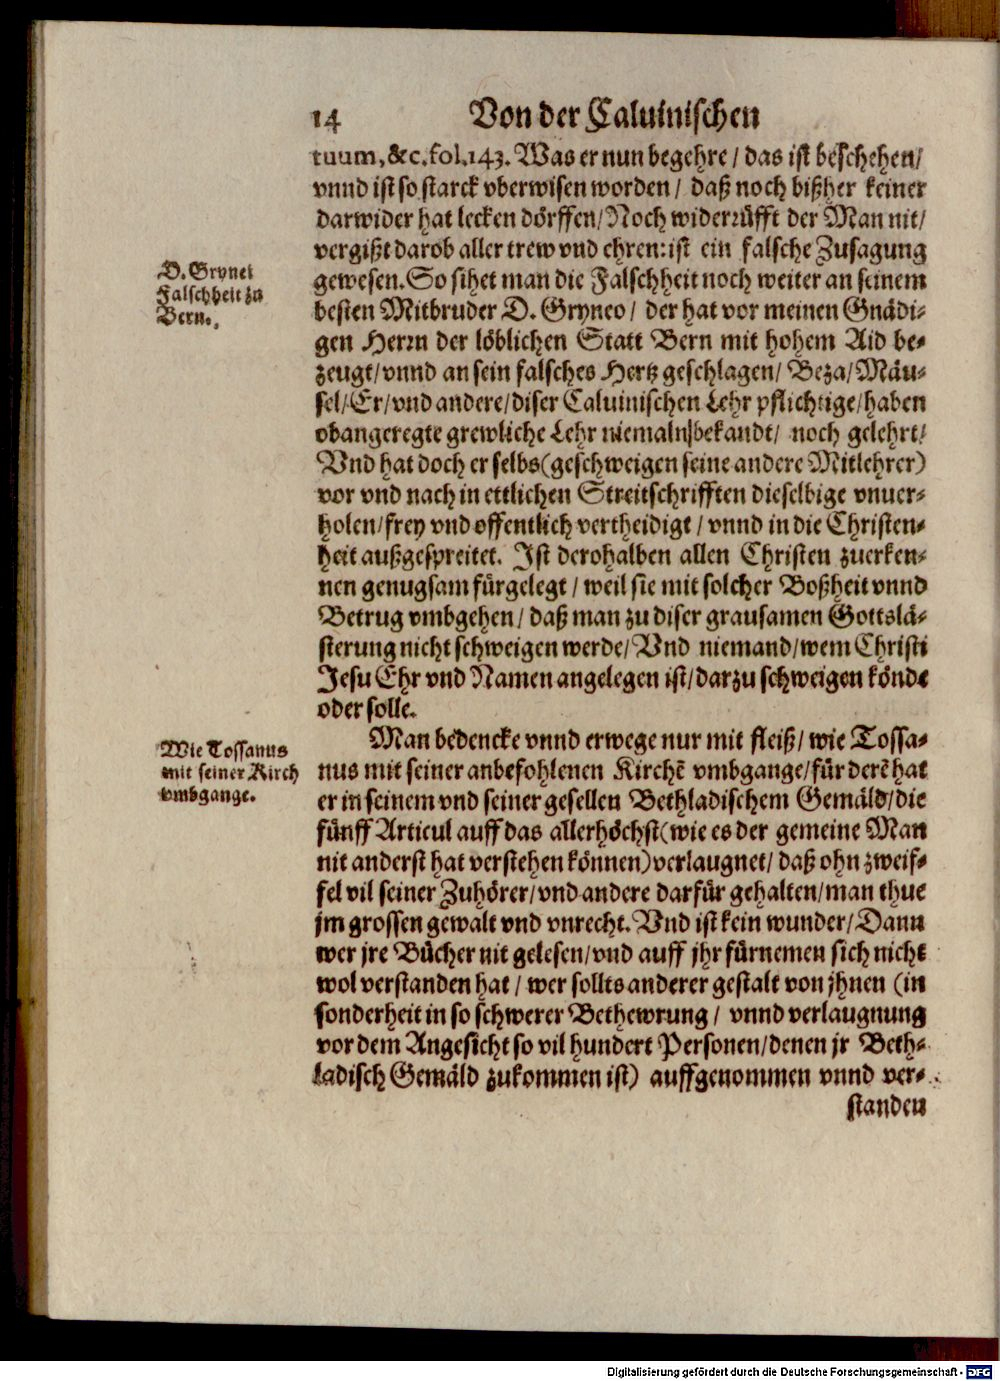 14 Von der Caluinischen
tuum, &c. fol. 143. Was er nun begehre / das ist beschehen /
vnnd ist so starck vberwisen worden / daß noch bißher keiner
darwider hat lecken dörffen / Noch widerrüfft der Man nit /
vergißt darob aller trew vnd ehren: ist ein falsche Zusagung
D. Grynei
Falschheit zu
Bern.
gewesen. So sihet man die Falschheit noch weiter an seinem
besten Mitbruder D. Gryneo / der hat vor meinen Gnädi-
gen Herrn der löblichen Statt Bern mit hohem Aid be-
zeugt / vnnd an sein falsches Hertz geschlagen / Beza / Mäu-
sel / Er / vnd andere / diser Caluinischen Lehr pflichtige / haben
obangeregte grewliche Lehr niemaln bekandt / noch gelehrt /
Vnd hat doch er selbs (geschweigen seine andere Mitlehrer)
vor vnd nach in ettlichen Streitschrifften dieselbige vnuer-
holen / frey vnd offentlich vertheidigt / vnnd in die Christen-
heit außgespreitet. Ist derohalben allen Christen zuerken-
nen genugsam fürgelegt / weil sie mit solcher Boßheit vnnd
Betrug vmbgehen / daß man zu diser grausamen Gottslä-
sterung nicht schweigen werde / Vnd niemand / wem Christi
Jesu Ehr vnd Namen angelegen ist / darzu schweigen könde
oder solle.
Wie Tossanus
mit seiner Kirch
vmbgange.
Man bedencke vnnd erwege nur mit fleiß / wie Tossa-
nus mit seiner anbefohlenen Kirchē vmbgange / für derē hat
er in seinem vnd seiner gesellen Bethladischem Gemäld / die
fünff Articul auff das allerhöchst (wie es der gemeine Man
nit anderst hat verstehen können) verlaugnet / daß ohn zweif-
fel vil seiner Zuhörer / vnd andere darfür gehalten / man thue
jm grossen gewalt vnd vnrecht. Vnd ist kein wunder / Dann
wer jre Bücher nit gelesen / vnd auff jhr fürnemen sich nicht
wol verstanden hat / wer sollts anderer gestalt von jhnen (in
sonderheit in so schwerer Bethewrung / vnnd verlaugnung
vor dem Angesicht so vil hundert Personen / denen jr Beth-
ladisch Gemäld zukommen ist) auffgenommen vnnd ver-
standen
Digitalisierung gefördert durch die Deutsche Forschungsgemeinschaft - DFG